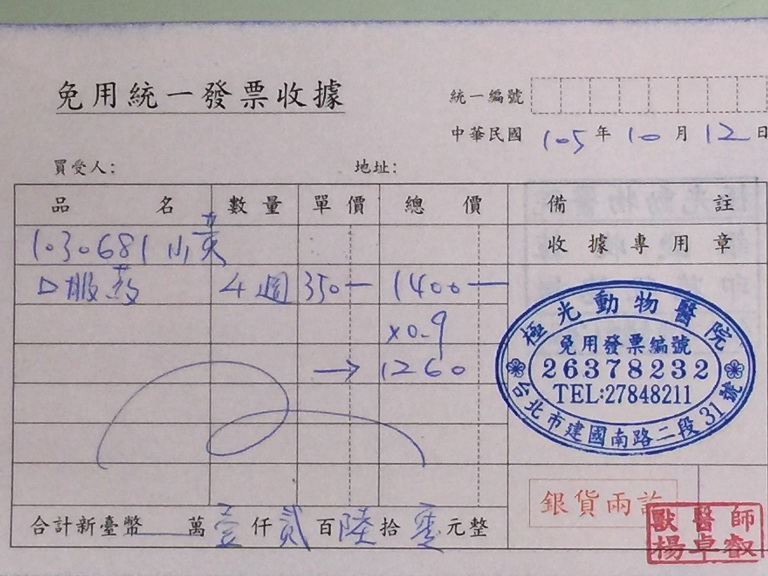 免用統一發票收據
統一編號
中華民國 105 年 10 月 12 日
買受人: 地址:
品 名 數量 單價 總價 備 註
1030681 小黃 收據專用章
口服药 4週 350— 1400—
x0.9
→ 1260
極光動物醫院
免用發票編號
26378232
TEL:27848211
台北市建國南路二段31號
銀貨兩訖
合計新臺幣 萬壹仟貳百陸拾零元整
獸醫師
楊卓叡